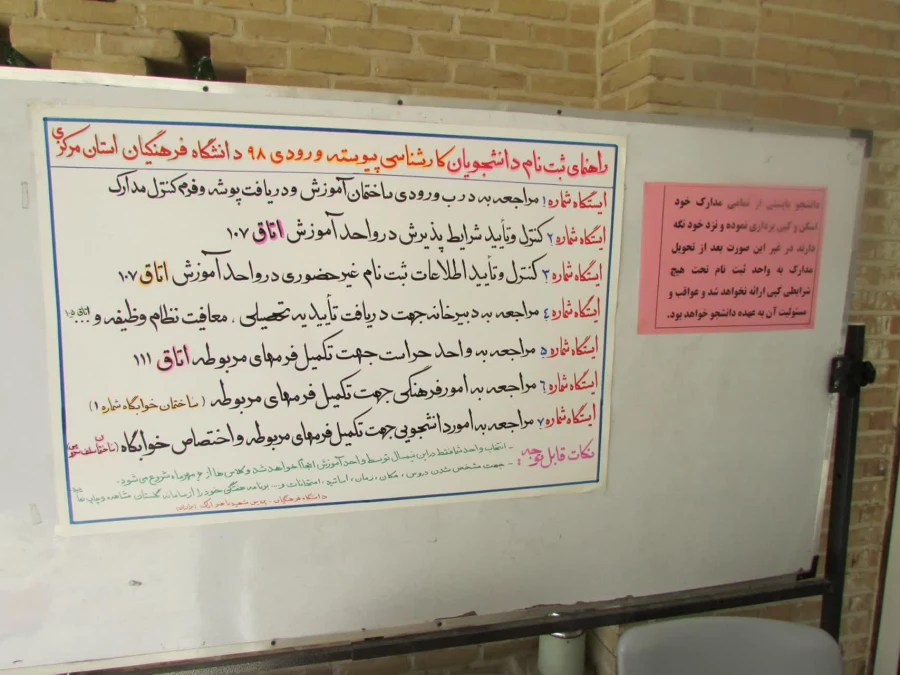 راهنمای ثبت نام دانشجویان کارشناسی پیوسته ورودی ۹۸ دانشگاه فرهنگیان استان مرکزی
ایستگاه شماره ۱ مراجعه به درب ورودی ساختمان آموزش و دریافت پوشه و فرم کنترل مدارک
ایستگاه شماره ۲ کنترل و تأیید شرایط پذیرش در واحد آموزش اتاق ۱۰۷
ایستگاه شماره ۳ کنترل و تأیید اطلاعات ثبت نام غیر حضوری در واحد آموزش اتاق ۱۰۷
ایستگاه شماره ۴ مراجعه به دبیرخانه جهت دریافت تأییدیه تحصیلی ، معافیت نظام وظیفه و ... اتاق ۱۰۵
ایستگاه شماره ۵ مراجعه به واحد حراست جهت تکمیل فرمهای مربوطه اتاق ۱۱۱
ایستگاه شماره ۶ مراجعه به امور فرهنگی جهت تکمیل فرمهای مربوطه (ساختمان خوابگاه شماره ۱)
ایستگاه شماره ۷ مراجعه به امور دانشجویی جهت تکمیل فرمهای مربوطه و اختصاص خوابگاه
نکات قابل توجه :
- انتخاب واحد شما فقط در این نیمسال توسط واحد آموزش انجام خواهد شد و کلاس ها از مهرماه شروع می شود.
- جهت مشخص شدن دروس ، مکان ، زمان ، اساتید ، امتحانات و... برنامه هفتگی خود را از سامانه گلستان مشاهده و چاپ نمایید
دانشگاه فرهنگیان -
دانشجو بایستی از تمامی مدارک خود
اسکن و کپی برداری نموده و نزد خود نگه
دارند در غیر این صورت بعد از تحویل
مدارک به واحد ثبت نام تحت هیچ
شرایطی کپی ارائه نخواهد شد و عواقب و
مسئولیت آن به عهده دانشجو خواهد بود.